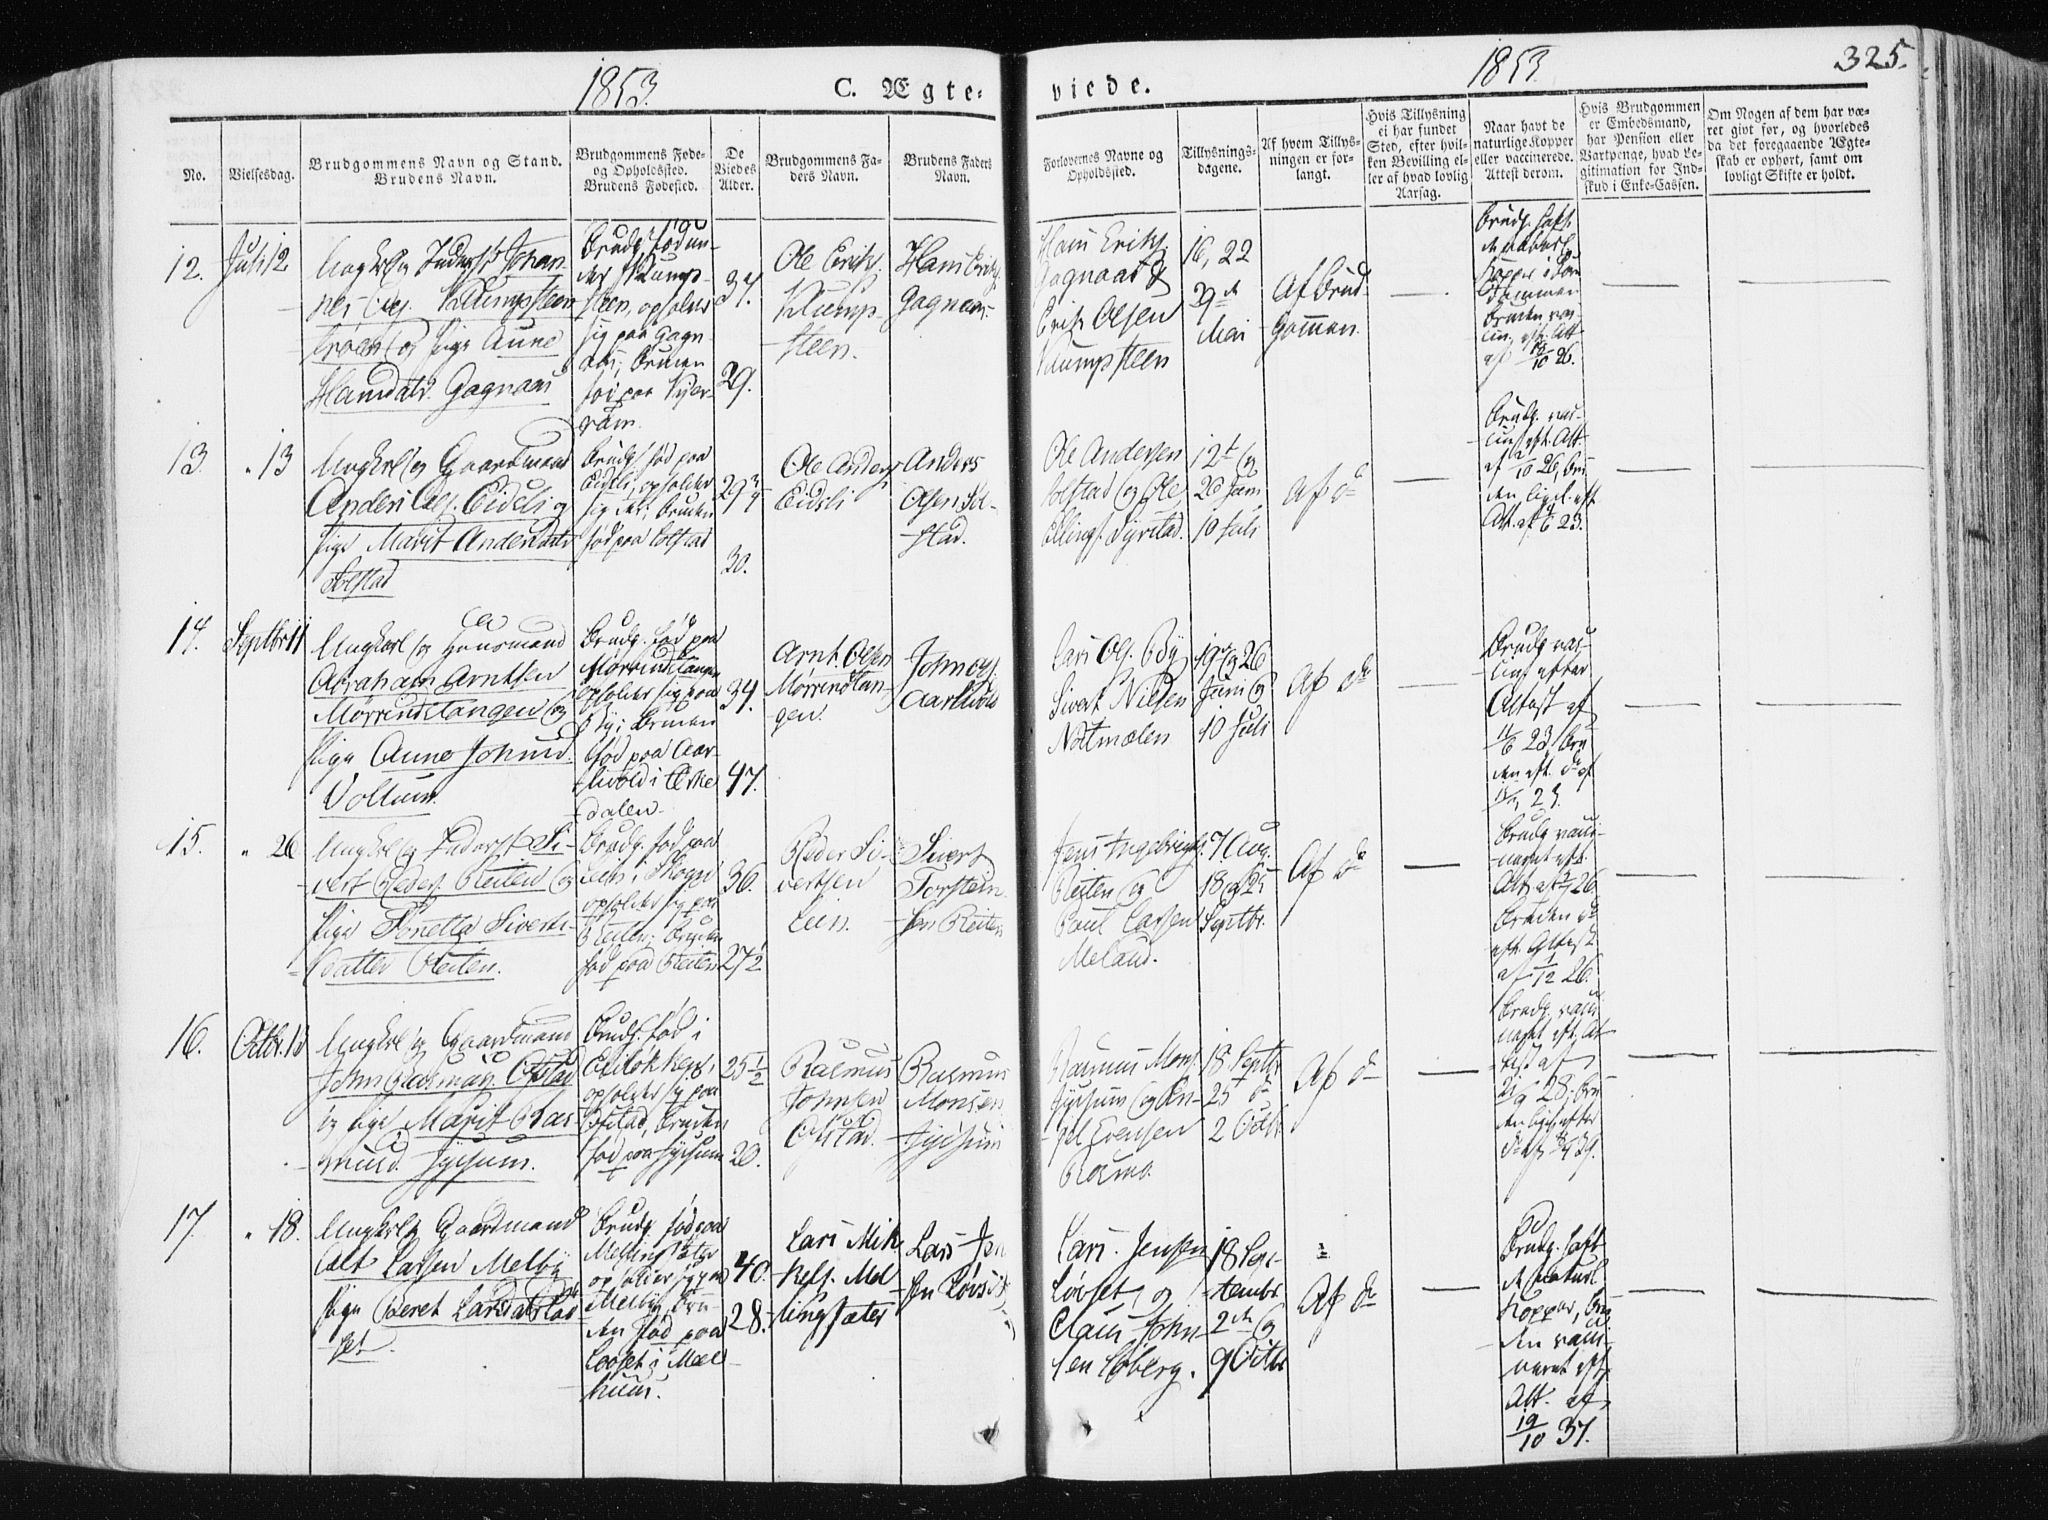 1853.
C. Ægte-
viede.
1853
325.
No.
Vielsesdag.
Brudgommens Navn og Stand.
Brudens Navn.
Brudgommens Føde-
og Opholdssted.
Brudens Fødested.
De
Viedes
Alder.
Brudgommens Fa-
ders Navn.
Brudens Faders
Navn.
Forlovernes Navne og
Opholdssted.
Tillysnings-
dagene.
Af hvem Tillys-
ningen er for-
langt.
Hvis Tillysning
ei har fundet
Sted, efter hvil-
ken Bevilling el-
ler af hvad lovlig
Aarsag.
Naar havt de
naturlige Kopper
eller vaccinerede.
Attest derom.
Hvis Brudgommen
er Embedsmand,
har Pension eller
Vartpenge, hvad Le-
gitimation for Ind-
skud i Enke-Cassen.
Om Nogen af dem har væ-
ret givt før, og hvorledes
da det foregaaende Ægte-
skab er ophørt, samt om
lovligt Skifte er holdt.
12.
Juli 12
Ungkarl og Inderst Johan-
nes Ols. Klumpsteen
og Pige Aune
Hansdatr. Gagnaas
Brudg. fød
steen, opholder
sig paa Gagn-
aas; Bruden
fød paa Kjer-
raam.
34.
29.
Ole Eriks.
Klump-
steen.
Hans Eriks.
Gagnaas.
Hans Eriks.
Gagnaas &
Erik Olsen
Klumpsteen
16, 22
29de
Mai
Af Brud-
gommen.
Brudg. haft
de naturl.
Kopper i Barn-
dommen
Bruden vac-
cin. efter Att.
af 18/10 26.
13.
" 13
Ungkarl og Gaardmand
Anders Ols. Eidsli og
Pige Marit Andersdatr
Solstad
Brudg. fød paa
Eidsli, opholder
sig der; Bruden
fød paa Solstad
29 3/4
30.
Ole Anders.
Eidsli
Anders
Olsen Sol-
stad.
Ole Andersen
Solstad og Ole
Ellings. Syrstad.
12te og
26 Juni
10 Juli
Af do
Brudg. vac-
cin. eft. Att.
af 26, Bru-
den ligel. eft.
Att. af 23.
14.
Septbr 11
Ungkarl og Huusmand
Abraham Arntsen
Mørrindstangen og
Pige Aune Johnsd.
Volluin.
Brudg. fød paa
Mørrindstangen
opholder sig paa
By; Bruden
fød paa Aar-
livold i Ørke-
dalen.
34.
47.
Arnt. Olsen
Mørrindstan-
gen.
John Ols.
Aarlivold
Lars Ols. By
Sivert Nielsen
19 og 26
Juni og
10 Juli
Af do
Brudg. vac-
cin. efter
Attest af
11/6 23, Bru-
den eft. do af
23.
15.
" 26
Ungkarl og Inderst Si-
vert Peders. Reiten og
Pige Sivers-
datter Reiten.
Brudg. fød paa
Lein i Skogn
opholder sig paa
Reiten; Bruden
fød paa Reiten
36.
27 1/2
Peder Si-
vertsen
Lein.
Sivert
Torstein-
sen Reiten
Jens Ingebrigts.
Reiten og
Poul Larsen
Meland.
7. Aug.
18 og 25
Septbr.
Af do
Brudg. vacci-
neret eft.
Att. af 26
Bruden do
eft. Attest
af 1/12 26.
16.
Octbr. 18
Ungkarl og Gaardmand
John Rasmus. Ofstad
og Pige Marit Ras-
musd. Jyssum.
Brudg. fød i
opholder sig paa
Ofstad, Bruden
fød paa Jyssum
25 1/2
20.
Rasmus
Johnsen
Ofstad.
Rasmus
Monsen
Jyssum
Rasmus Mons.
Jyssum og En-
gel Evensen
18 Septbr
25 do
2 Octbr.
Af do
Brudg. vacci-
neret eft. At-
test af
21/9 28; Bru-
den ligel. efter
do af 39.
17.
" 18.
Ungkarl og Gaardmand
Larsen Melby
Pige Beret Larsdatr Løv-
set.
Brudg. fød paa
Mellingsæter
opholder sig paa
Melby, Bru-
den fød paa
Løvset i Mel-
huus.
40.
28.
Lars Mik-
kels. Mel-
lingsæter
Lars Jen-
sen Løvset
Lars. Jensen
Løvset, og
Claus John-
sen Løberg.
18 Sep-
tembr.
2den og
9 Octbr
Af do
Brudg. haft
de naturl.
Kopper, Bru-
den vacci-
neret eft.
Att. af
19/10 37.